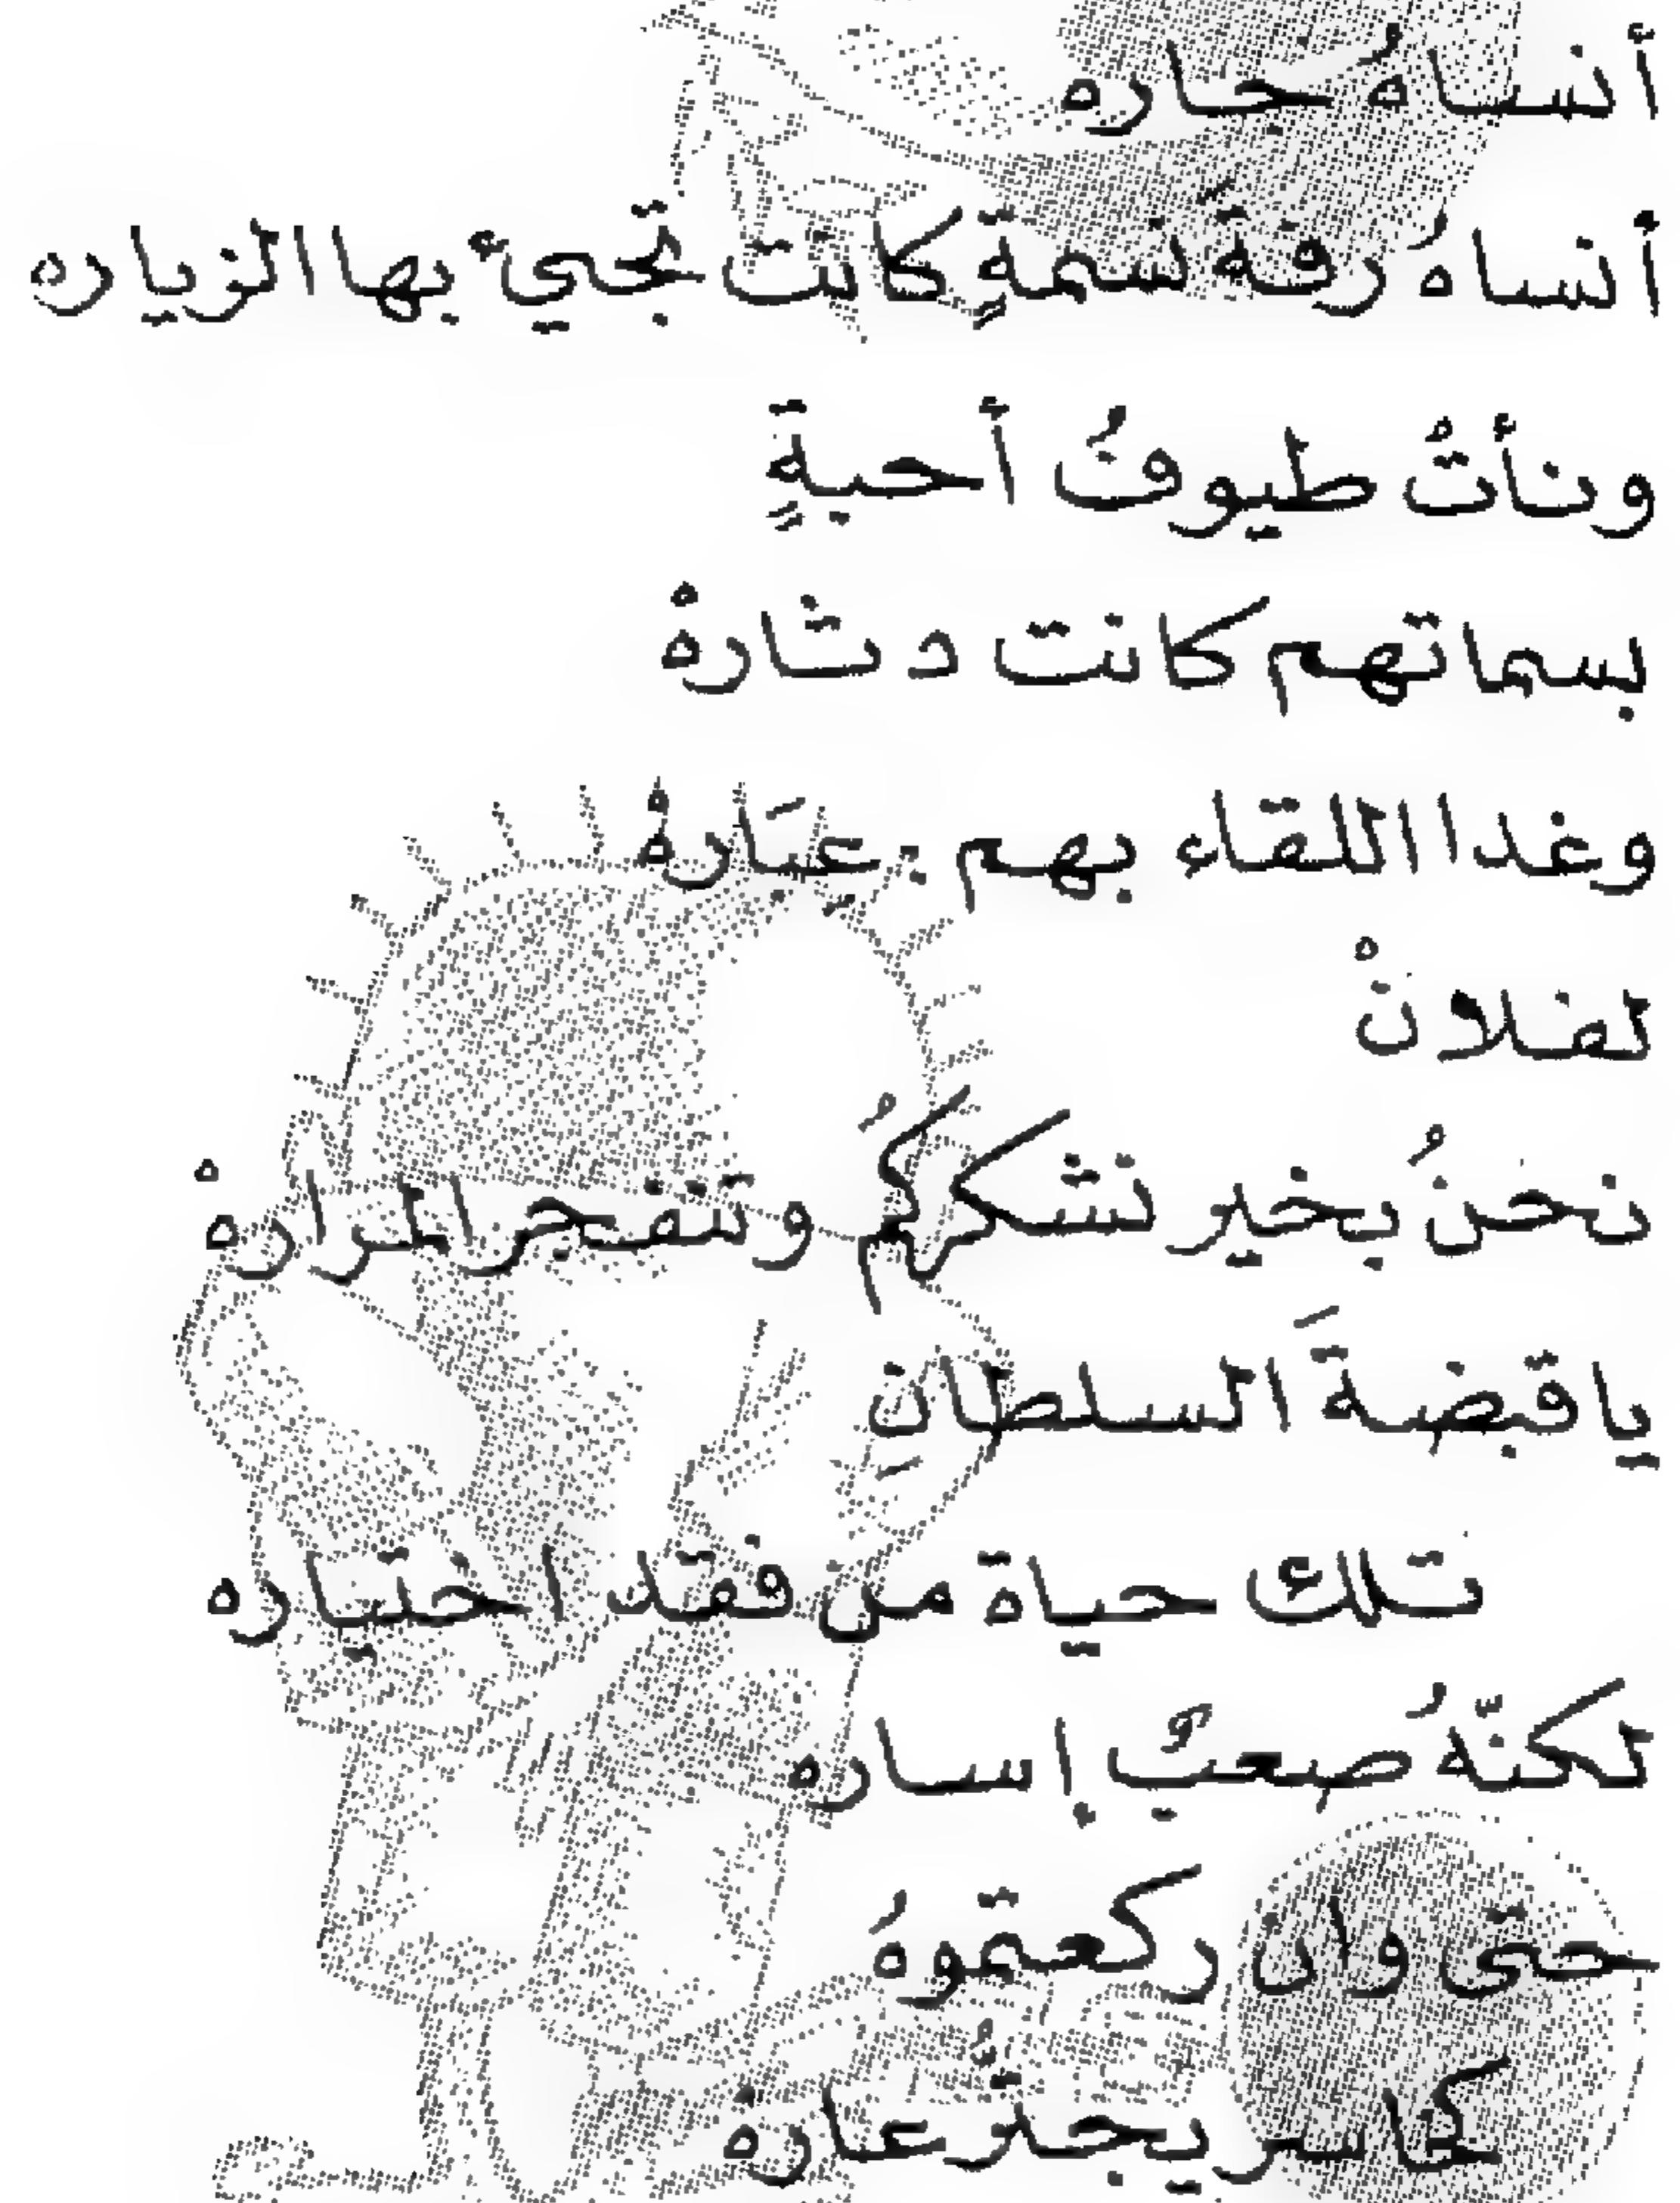 أنساهُ جاره
أنساهُ رقةَ نسمةٍ كانت تجيئ بها الزياره
ونأتْ طيوفُ أحبةٍ
بسماتهم كانت دثارهْ
وغدا اللقاء بهم . عِبَارهْ
لفلانْ
نحنُ بخير نشكركمُ وتنفجر المرارهْ
يا قبضةَ السلطانِ
تلك حياة من فقد اختياره
لكنّهُ صعبٌ إساره
حتى وان ركعتموهُ
كخاسر يجترُّ عارهْ